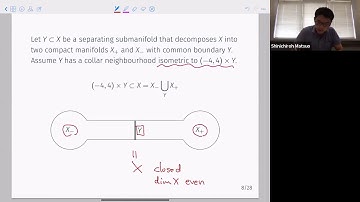 Shinichiroh Matsuo
Let Y ⊂ X be a separating submanifold that decomposes X into
two compact manifolds X₊ and X₋ with common boundary Y.
Assume Y has a collar neighbourhood isometric to (−4, 4) × Y.
(−4, 4) × Y ⊂ X = X₋ ⋃ X₊
Y
X₋ Y X₊
=
X closed
dim X even
8/28